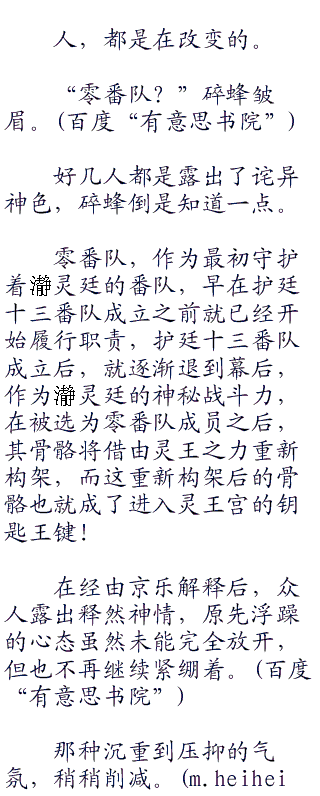 人，都是在改变的。
“零番队？”碎蜂皱
眉。(百度“有意思书院”)
好几人都是露出了诧异
神色，碎蜂倒是知道一点。
零番队，作为最初守护
着瀞灵廷的番队，早在护廷
十三番队成立之前就已经开
始履行职责，护廷十三番队
成立后，就逐渐退到幕后，
作为瀞灵廷的神秘战斗力，
在被选为零番队成员之后，
其骨骼将借由灵王之力重新
构架，而这重新构架后的骨
骼也就成了进入灵王宫的钥
匙王键！
在经由京乐解释后，众
人露出释然神情，原先浮躁
的心态虽然未能完全放开，
但也不再继续紧绷着。(百度
“有意思书院”)
那种沉重到压抑的气
氛，稍稍削减。(m.heihei